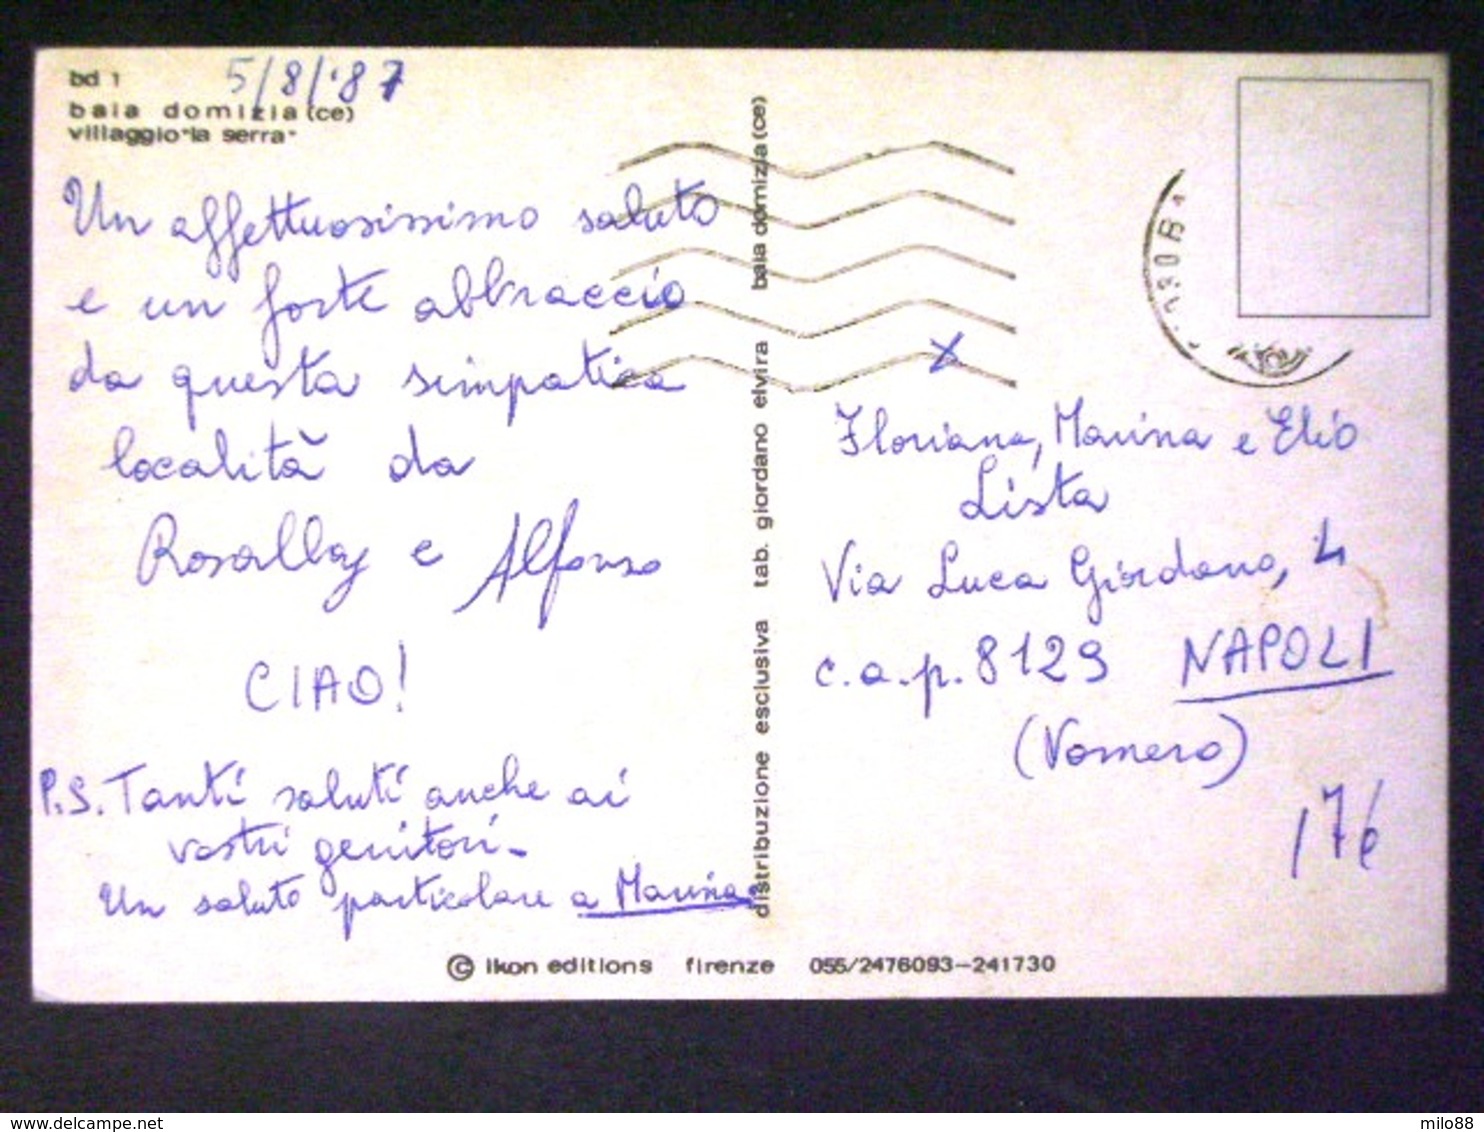 bd 1
5/8/'87
baia domizia (ce)
villaggio "la serra"
Un affettuosissimo saluto
e un forte abbraccio
da questa simpatica
località da
Rosally e Alfonso
CIAO!
P.S. Tanti saluti anche ai
vostri genitori.
Un saluto particolare a Marina
distribuzione esclusiva tab. giordano elvira baia domizia (ce)
Floriana, Marina e Elio
Lista
Via Luca Giordano, 4
c.a.p. 8129 NAPOLI
(Vomero)
176
© ikon editions firenze 055/2476093-241730
delcampe.net
milo88